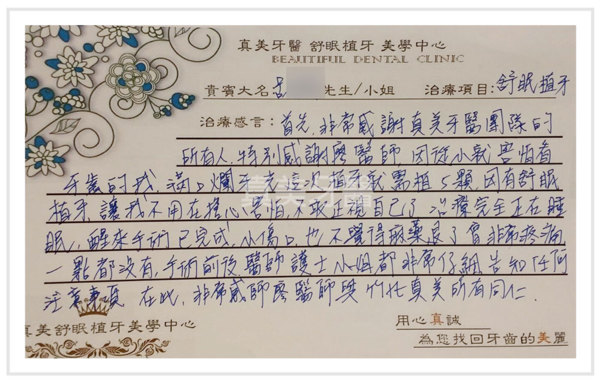 真美牙醫 舒眠植牙 美學中心
BEAUTIFUL DENTAL CLINIC
貴賓大名 先生/小姐 治療項目：舒眠植牙
治療感言：首先，非常感謝真美牙醫團隊的
所有人，特別感謝廖醫師，因從小就害怕看
牙齒的我，滿口爛牙，這次植牙就需植5顆，因有舒眠
植牙，讓我不用在擔心害怕，不敢正視自己了，治療完全正在睡
眠，醒來手術已完成，小傷口，也不覺得麻藥退了會非常疼痛
一點都沒有，手術前後，醫師護士小姐都非常仔細告知任何
注意事項，在此，非常感謝廖醫師與竹北真美所有同仁.
真美舒眠植牙美學中心
用心真誠
為您找回牙齒的美麗
真美牙醫